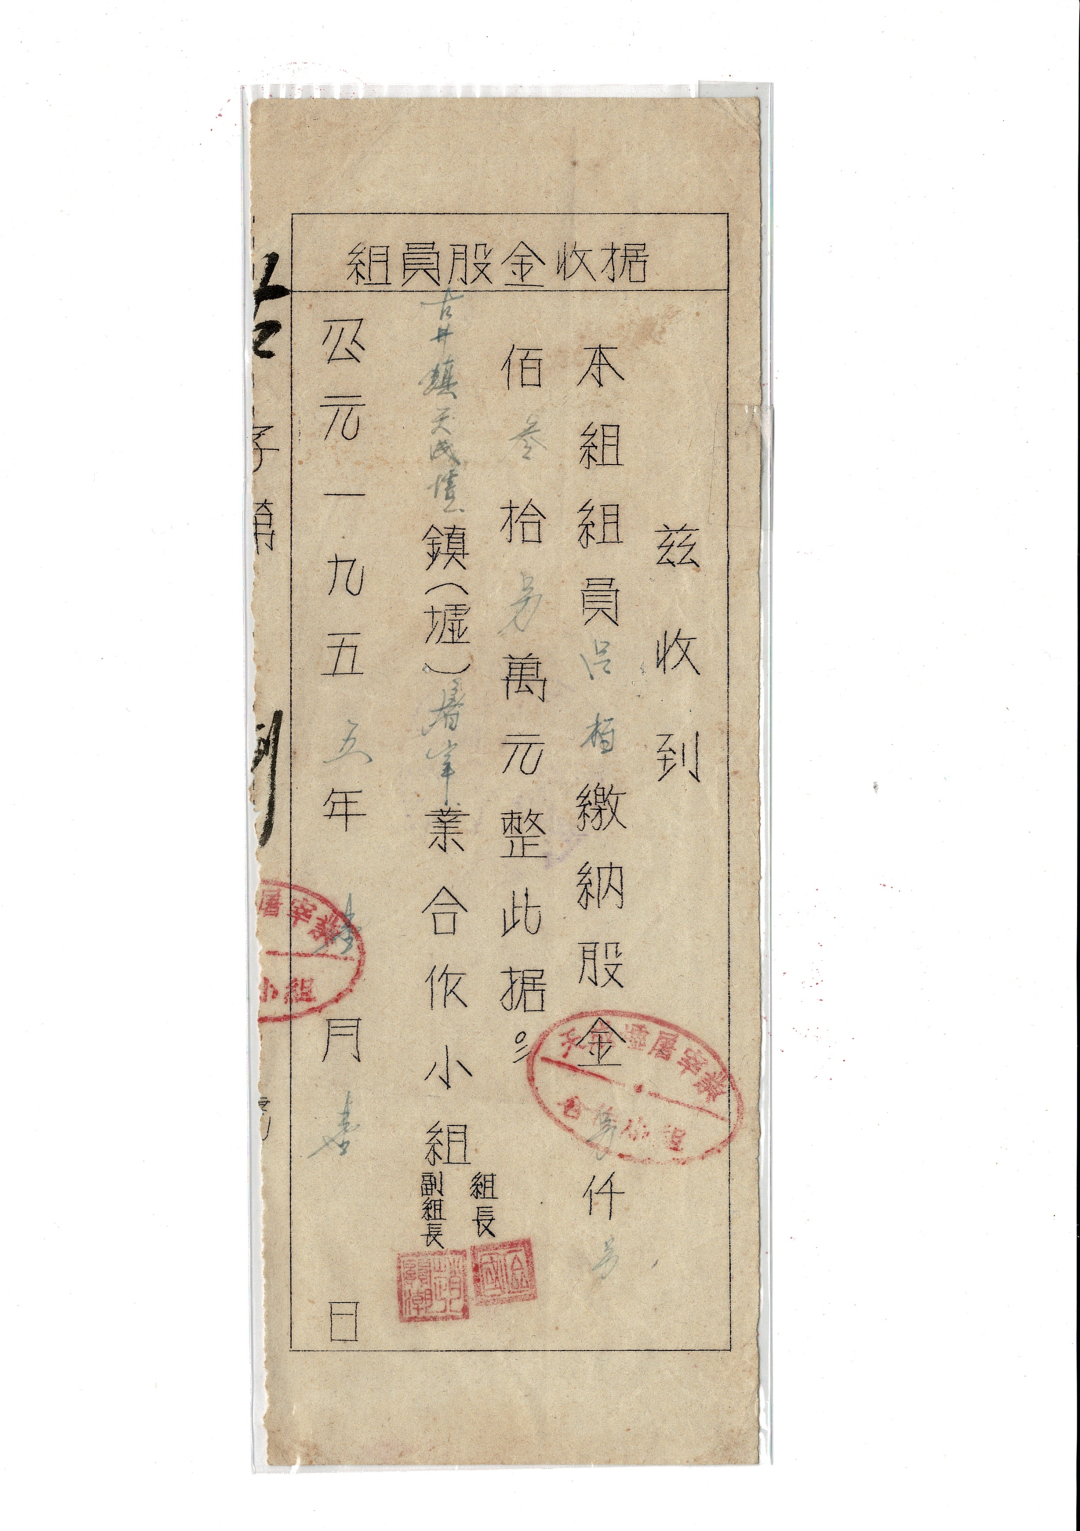 組員股金收据
兹收到
本組組員呂栢繳納股金另仟另
佰叁拾另萬元整此据。
古井鎮天成墟鎮(墟)屠宰業合作小組
組長
副組長
公元一九五五年月壹日
字第
天成墟屠宰業
合作小組
屠宰業
小組